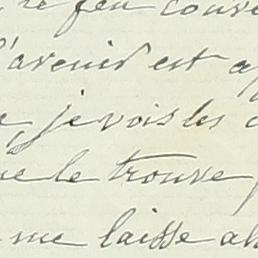 le feu couve
l'avenir est a
e, je vois les
ue le trouve
me laisse ah